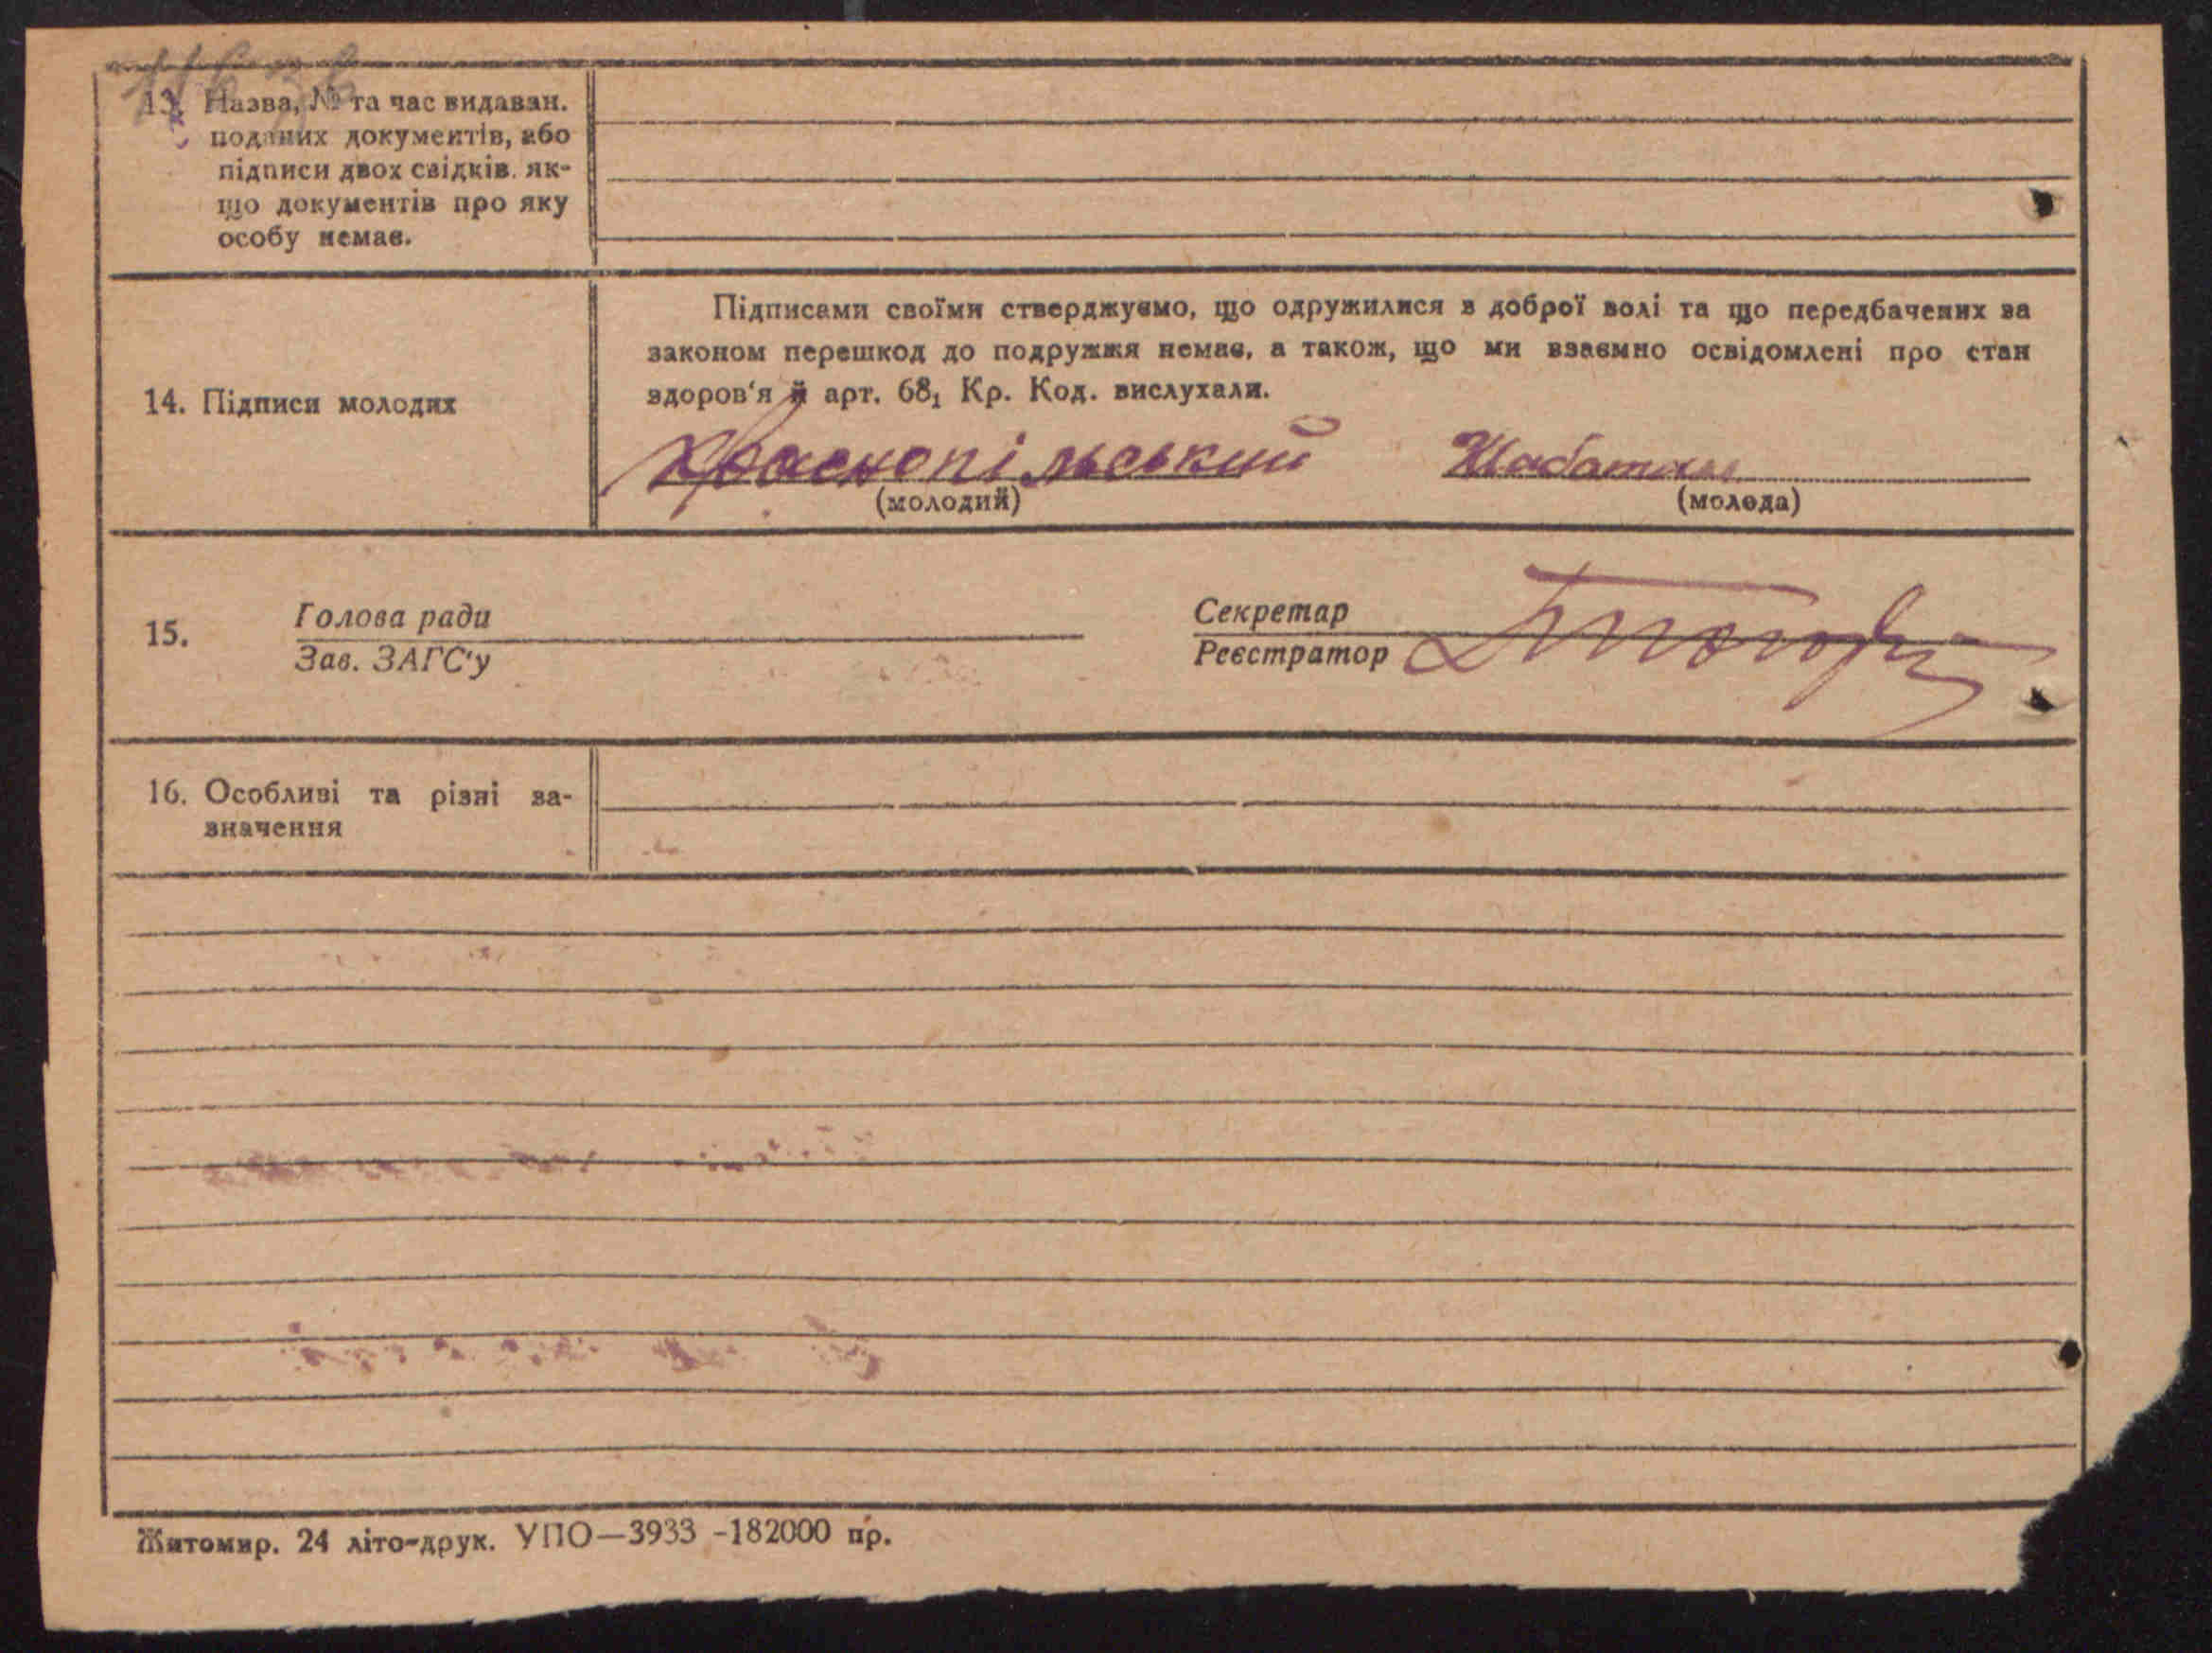 13. Назва, № та час видаван.
поданих документів, або
підписи двох свідків, як-
що документів про яку
особу немає.
Підписами своїми стверджуємо, що одружилися з доброї волі та що передбачених за
законом перешкод до подружжя немає, а також, що ми взаємно освідомлені про стан
здоров'я й арт. 68₁ Кр. Код. вислухали.
14. Підписи молодих
Краснопільський
(молодий) (молода)
15. Голова ради Секретар
Зав. ЗАГС'у Реєстратор
16. Особливі та різні за-
значення
Житомир. 24 літо-друк. УПО—3933 -182000 пр.